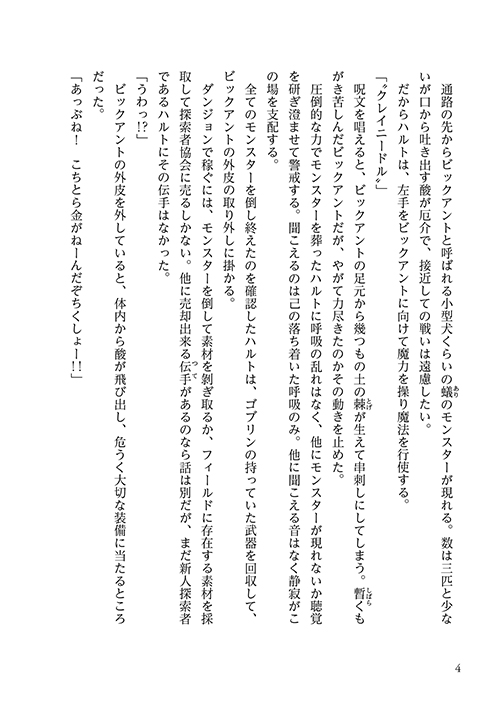 通路の先からビックアントと呼ばれる小型犬くらいの蟻のモンスターが現れる。数は三匹と少な
いが口から吐き出す酸が厄介で、接近しての戦いは遠慮したい。
　だからハルトは、左手をビックアントに向けて魔力を操り魔法を行使する。
「〝クレイニードル〟」
　呪文を唱えると、ビックアントの足元から幾つもの土の棘が生えて串刺しにしてしまう。暫くも
がき苦しんだビックアントだが、やがて力尽きたのかその動きを止めた。
　圧倒的な力でモンスターを葬ったハルトに呼吸の乱れはなく、他にモンスターが現れないか聴覚
を研ぎ澄ませて警戒する。聞こえるのは己の落ち着いた呼吸のみ。他に聞こえる音はなく静寂がこ
の場を支配する。
　全てのモンスターを倒し終えたのを確認したハルトは、ゴブリンの持っていた武器を回収して、
ビックアントの外皮の取り外しに掛かる。
　ダンジョンで稼ぐには、モンスターを倒して素材を剥ぎ取るか、フィールドに存在する素材を採
取して探索者協会に売るしかない。他に売却出来る伝手があるのなら話は別だが、まだ新人探索者
であるハルトにその伝手はなかった。
「うわっ!?」
　ビックアントの外皮を外していると、体内から酸が飛び出し、危うく大切な装備に当たるところ
だった。
「あっぶね！　こちとら金がねーんだぞちくしょー!!」
4